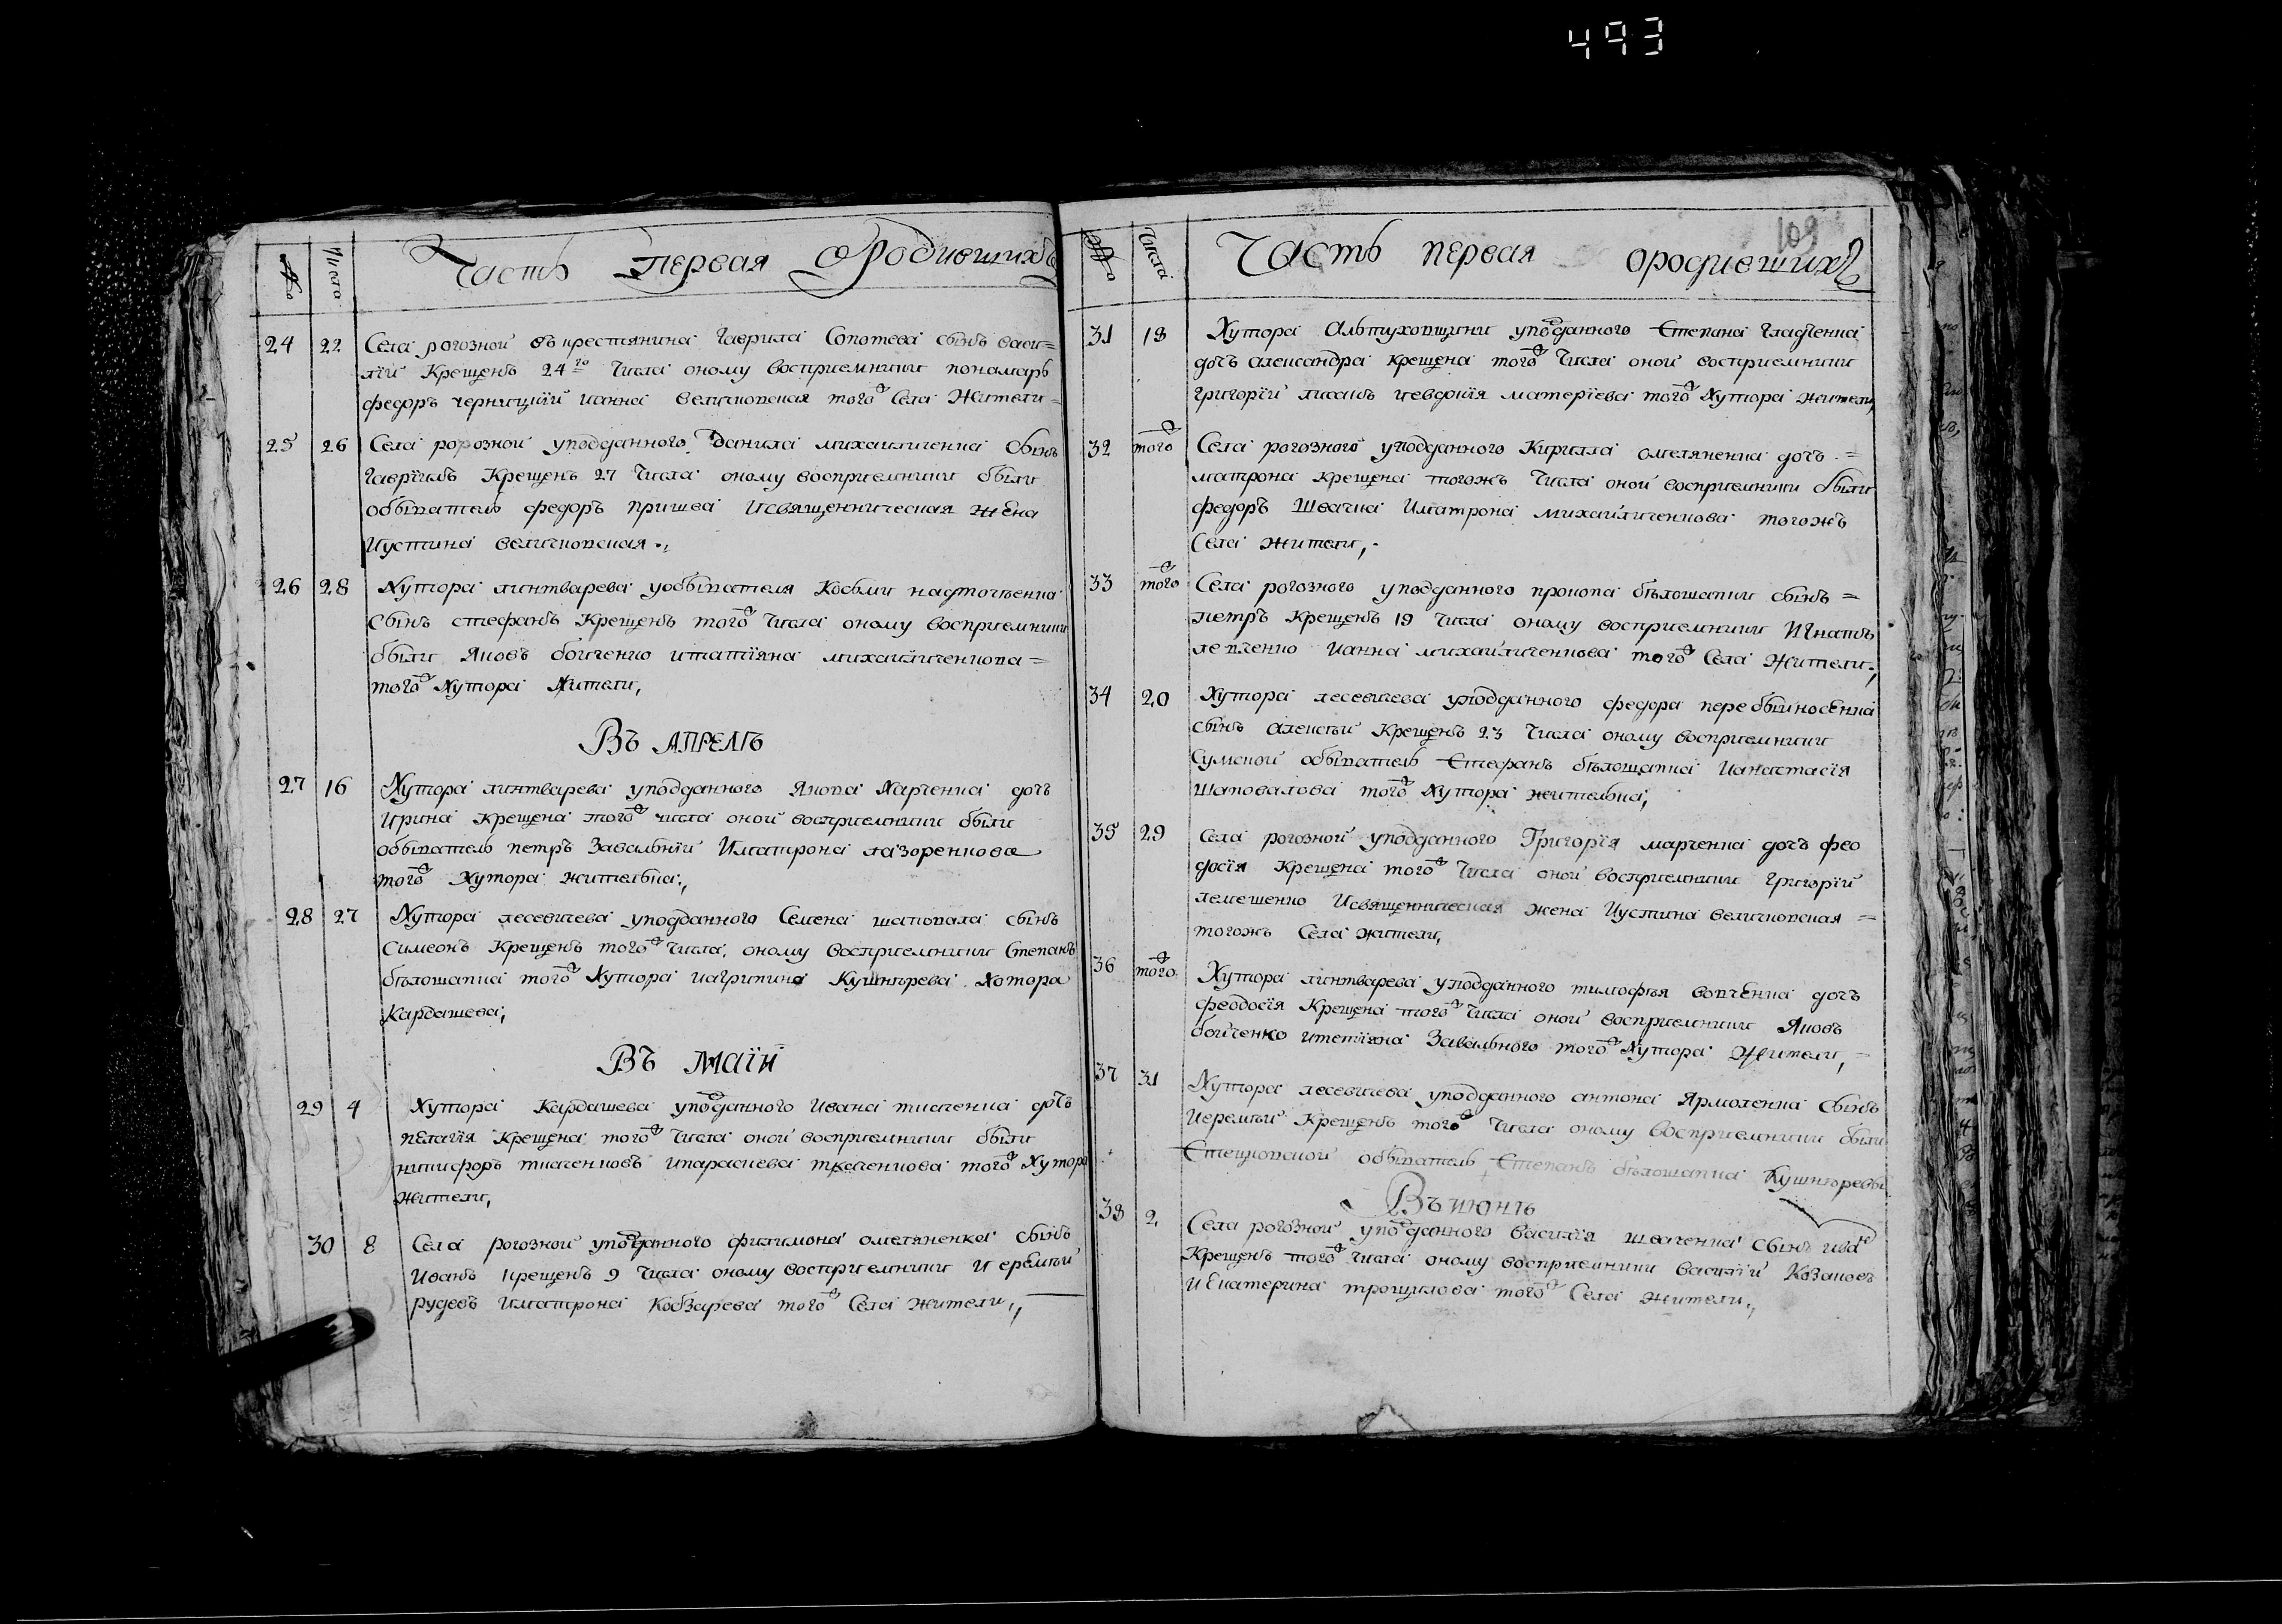 493
№ Число Часть первая ородившихъ
24 22 Села рогозной въ крестянина гаврила Сопотева сынъ васи=
лїй Крещенъ 24го Числа оному восприемники пономарь
федоръ черницкїй ианна величковская того ж Села Жители=
25 26 Села рогозной уподданного данила михайличенка Сынъ
гаврїилъ Крещенъ 27 Числа оному восприемники были
обыватель федоръ пришва Исвященническая жена
Иустина величковская.,
26 28 Хутора линтварева уобывателя Косьми надточѣенка
Сынъ стефанъ Крещенъ того ж Числа оному восприемники
были Яковъ бойченко итатїяна михайличенкова=
того ж Хутора Жители,
Въ АПРЕЛѢ
27 16 Хутора линтварева уподданного Якова Харченка дочъ
Ирина Крещена того ж числа оной восприемники были
обыватель петръ Завальнїй Иматрона лазоренкова
того ж Хутора жителька.,
28 27 Хутора лесевичева уподданного Семена шаповала сынъ
Симеонъ Крещенъ того ж Числа, оному восприемники Степанъ
бѣлошапка того ж Хутора иагрипина Кушнѣрева Хотора
Кардашева,
Въ маїи
29 4 Хутора Кардашева уподданного Ивана тисченка дочъ
пелагїя Крещена того ж Числа оной восприемники были
никифоръ тисченковъ ипараскева ткаченкова того ж Хутора
жители,
30 8 Села рогозной уподданного филимона омеляненка сынъ
Иванъ Крещенъ 9 Числа оному восприемники Иеремѣй
рудевъ Иматрона Кобзарева того ж Села жители.,
109
№ Числа Часть первая ородившихъ
31 18 Хутора Альтуховщини уподданного Степана гладченка
дочъ александра Крещена того ж Числа оной восприемники
григорїй лисакъ иевдокїя матерїева того ж Хутора жители,
32 того ж Села рогозного уподданного Кирилла омеляненка дочъ=
матрона Крещена тогожъ Числа оной восприемники были
федоръ Швачка Иматрона михайличенкова тогожъ
Села жители,
33 того ж Села рогозного уподданного прокопа бѣлошапки сынъ=
петръ Крещенъ 19 Числа оному восприемники Игнатъ
левченко Ианна михайличенкова того ж Села Жители.,
34 20 Хутора лесевичева уподданного федора перебийносенка
сынъ Алексѣй Крещенъ 23 Числа оному восприемники
Сумской обыватель Стефанъ бѣлошапка Ианастасїя
Шаповалова того ж Хутора жителька,
35 29 Села рогозной уподданного Григорїя марченка дочъ фео
досїя Крещена того ж Числа оной восприемники григорїй
лемешенко Исвященническая жена Иустина величковская=
тогожъ Села жители,
36 того ж Хутора линтварева уподданного тимофѣя вовченка дочъ
феодосїя Крещена того ж Числа оной восприемники Яковъ
бойченко итетїяна Завального того ж Хутора Жители,
37 31 Хутора лесевичева уподданного антона Ярмоленка сынъ
Иеремѣй Крещенъ того ж Числа оному восприемники были
Стецковской обыватель Степанъ бѣлошапка Кушнѣревы
Въ июнѣ
38 2 Села рогозной уподданного василїя швеченка сынъ иванъ
Крещенъ того ж Числа оному восприемники василїй Козаковъ
и Екатерина трощилова того ж Села жители.,